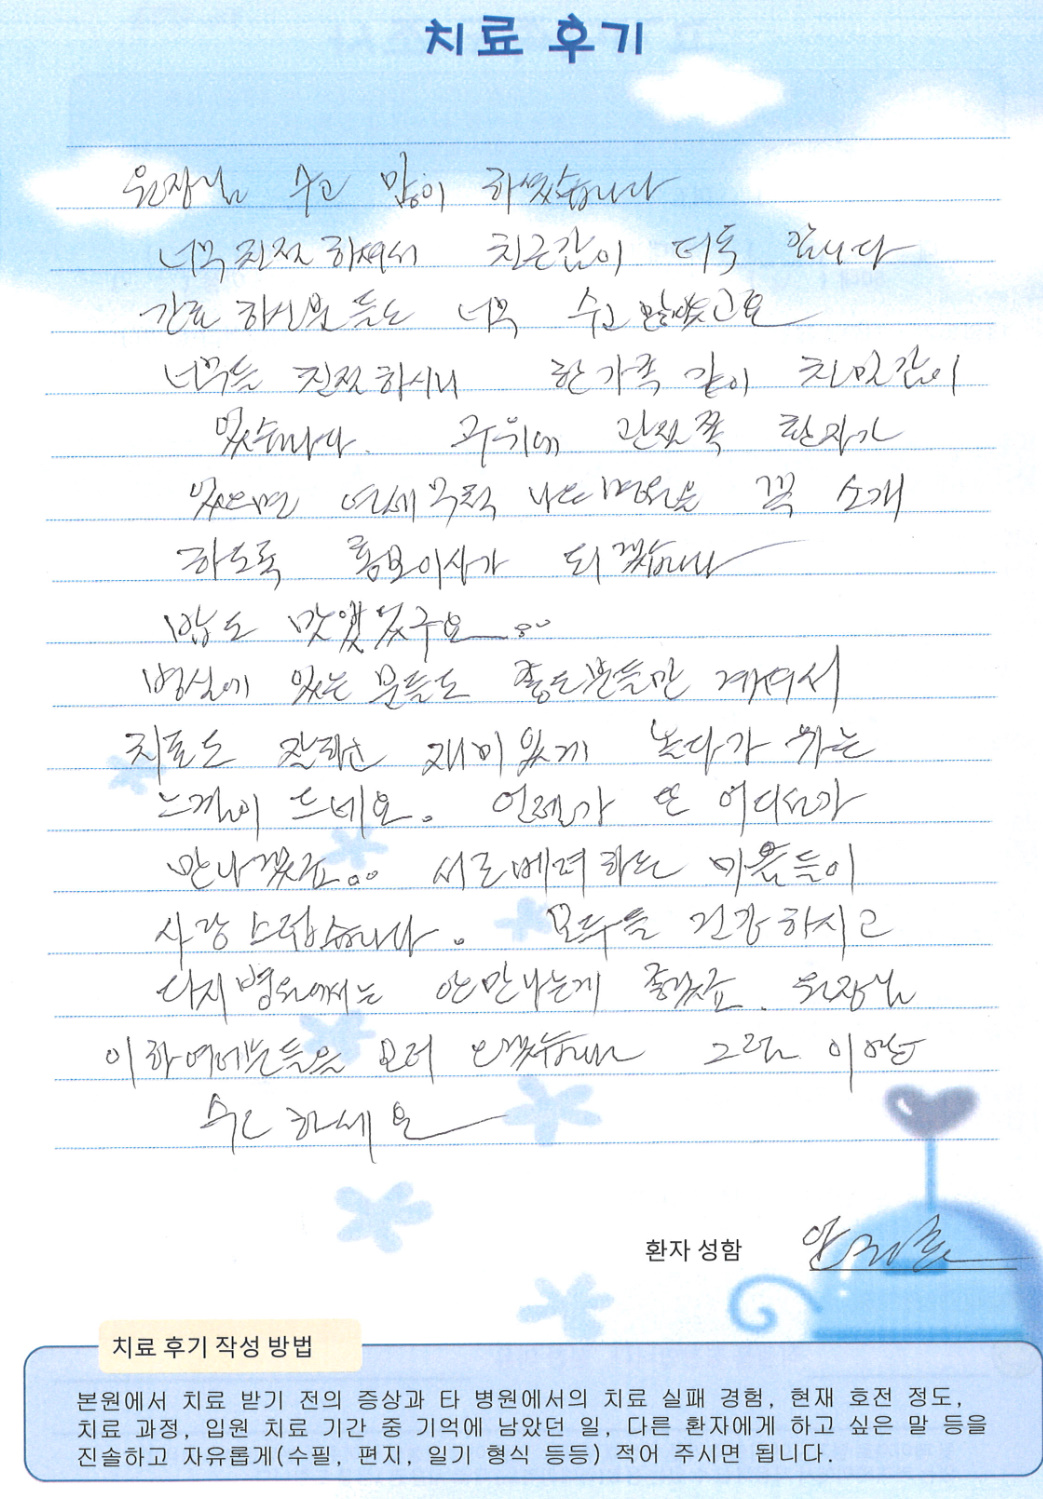 치료 후기
원장님 수고 많이 하셨습니다
너무 친절하셔서 친근감이 더욱 갑니다
간호 하신분들도 너무 수고 많았고요
너무들 친절하시니 한가족 같이 친밀감이
있습니다. 주위에 관절쪽 환자가
있으면 연세무척나은병원을 꼭 소개
하도록 홍보이사가 되겠습니다
밥도 맛있었구요
병실에 있는 분들도 좋은분들만 계셔서
치료도 잘되고 재미있게 놀다가 가는
느낌이 드네요. 언젠가 또 어디선가
만나겠죠.. 서로베려하는 마음들이
사랑스럽습니다. 모두들 건강하시고
다시병원에서는 안만나는게 좋겠죠. 원장님
이하여러분들을 모러 오겠습니다 그럼 이만
수고하세요
환자 성함
치료 후기 작성 방법
본원에서 치료 받기 전의 증상과 타 병원에서의 치료 실패 경험, 현재 호전 정도,
치료 과정, 입원 치료 기간 중 기억에 남았던 일, 다른 환자에게 하고 싶은 말 등을
진솔하고 자유롭게(수필, 편지, 일기 형식 등등) 적어 주시면 됩니다.